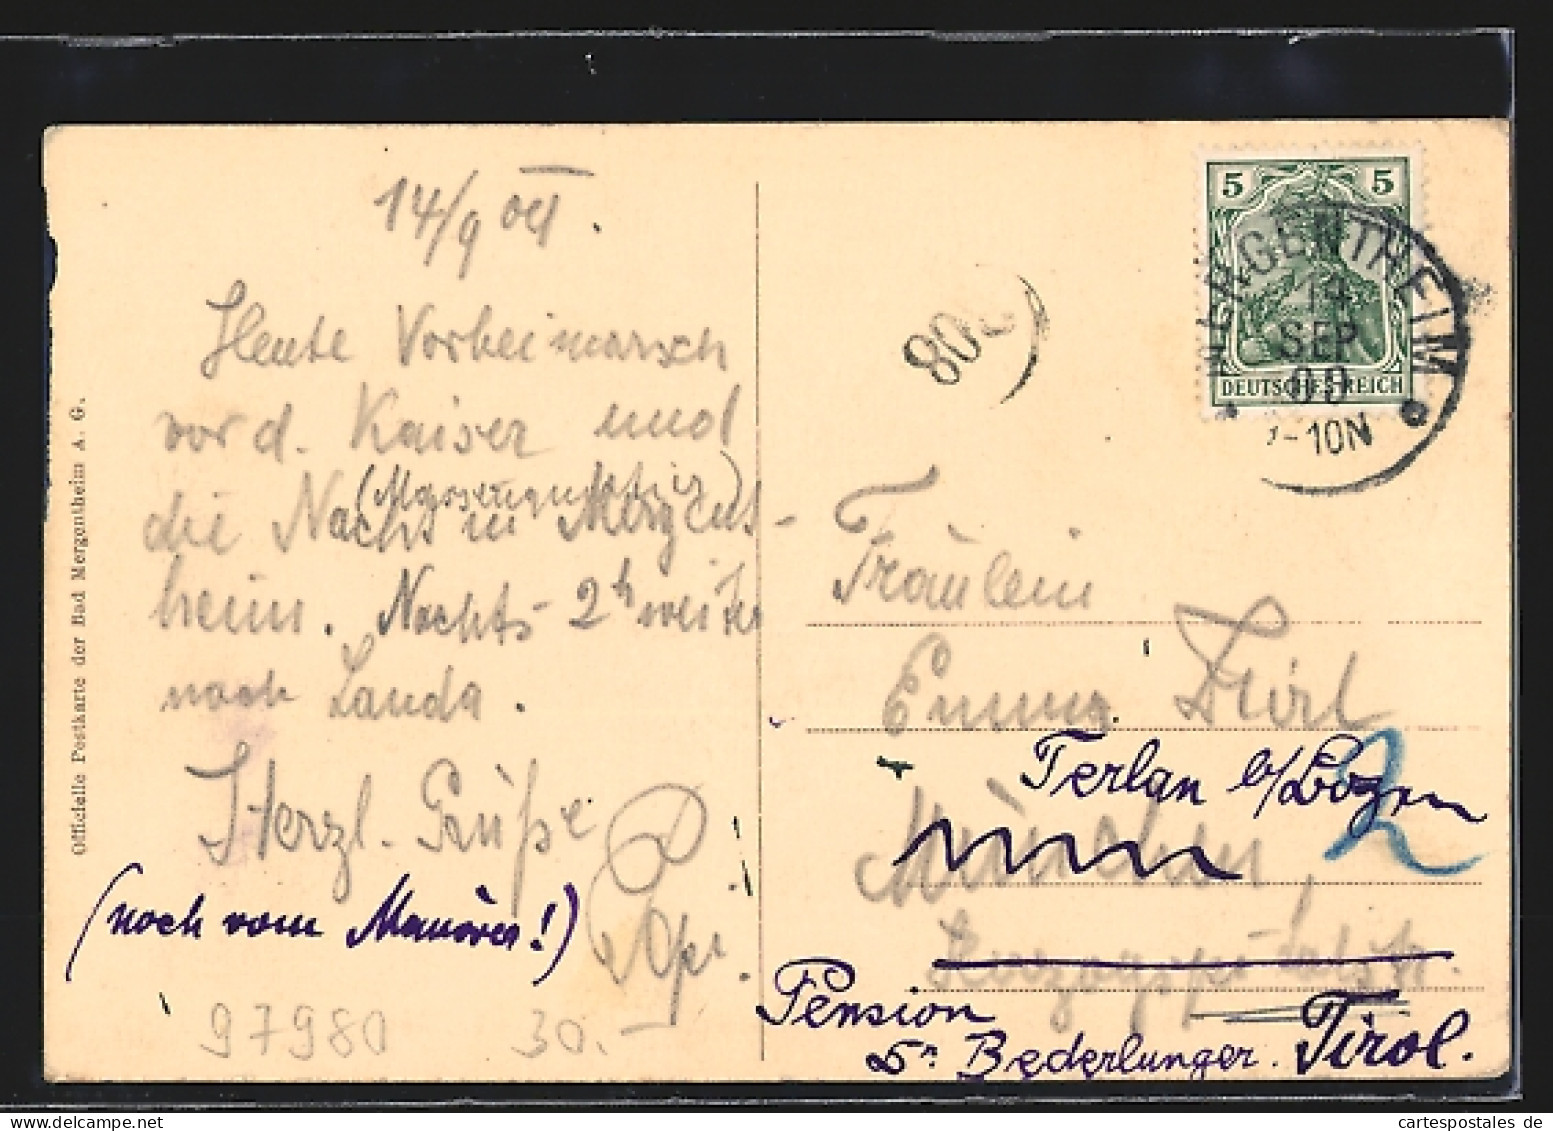 14/9 09.
Heute Vorbeimarsch
vor d. Kaiser und
(Massenquartier)
die Nacht in Mergent-
heim. Nachts 2h weiter
nach Lauda.
Herzl. Grüße
(noch vom Manöver!)
97980 30.-
Officielle Postkarte der Bad Mergentheim A. G.
5 5
DEUTSCHES REICH
MERGENTHEIM
14
SEP
09
-10N
80
Fräulein
Emma
Terlan b/Bozen
2
München,
Pension
Dr. Bederlunger. Tirol.
cartespostales de